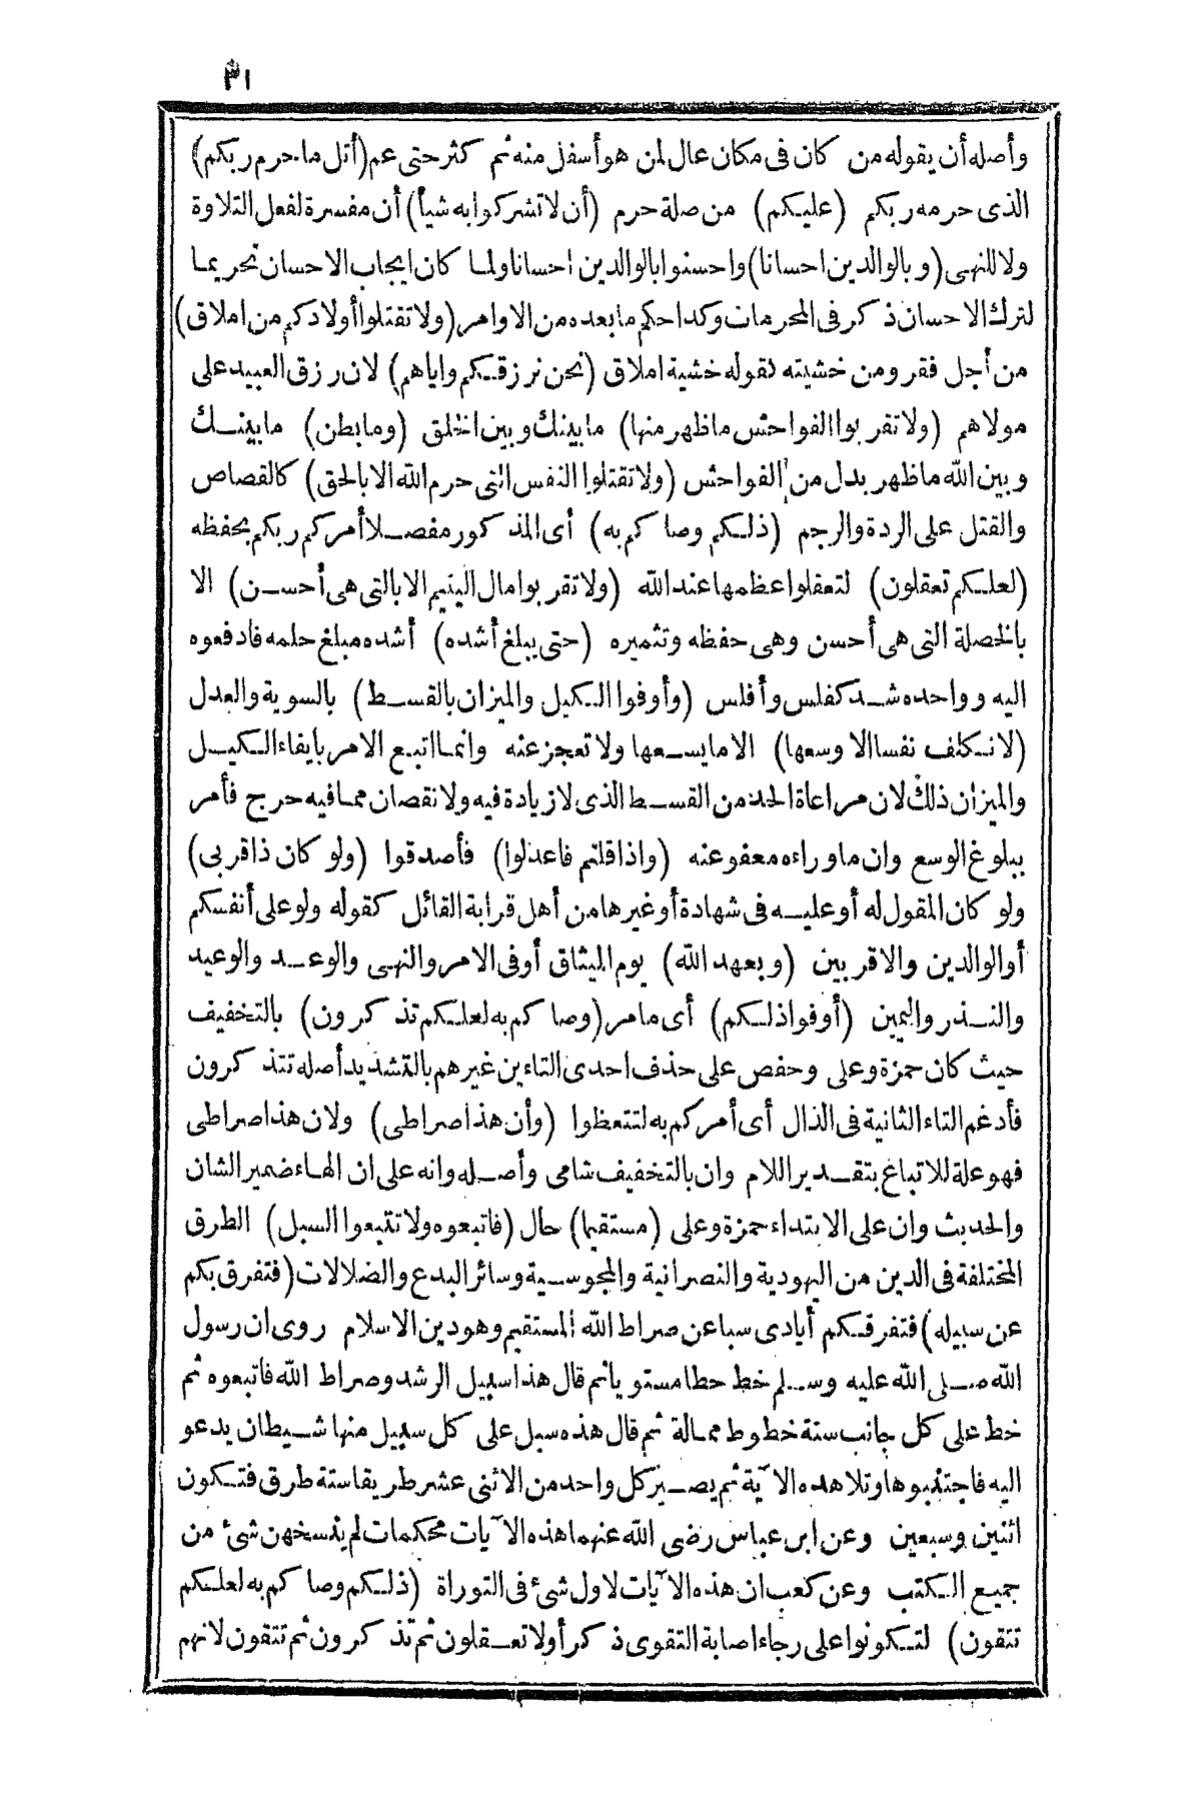 ٣١
وأصله أن يقوله من كان فى مكان عال لمن هو أسفل منه ثم كثر حتى عم (أتل ما حرم ربكم)
الذى حرمه ربكم (عليكم) من صلة حرم (أن لا تشركوا به شيأ) أن مفسرة لفعل التلاوة
ولا للنهى (وبالوالدين احسانا) واحسنوا بالوالدين احسانا ولما كان ايجاب الاحسان تحريما
لترك الاحسان ذكر فى المحرمات وكذا حكم ما بعده من الاوامر (ولا تقتلوا أولادكم من املاق)
من أجل فقر ومن خشيته لقوله خشية املاق (نحن نرزقكم واياهم) لان رزق العبيد على
مولاهم (ولا تقربوا الفواحش ما ظهر منها) ما بينك وبين الخلق (وما بطن) ما بينك
وبين الله ما ظهر بدل من الفواحش (ولا تقتلوا النفس التى حرم الله الا بالحق) كالقصاص
والقتل على الردة والرجم (ذلكم وصاكم به) أى المذكور مفصلا أمركم ربكم بحفظه
(لعلكم تعقلون) لتعقلوا عظمها عند الله (ولا تقربوا مال اليتيم الا بالتى هى أحسن) الا
بالخصلة التى هى أحسن وهى حفظه وتثميره (حتى يبلغ أشده) أشده مبلغ حلمه فادفعوه
اليه وواحده شد كفلس وأفلس (وأوفوا الكيل والميزان بالقسط) بالسوية والعدل
(لا نكلف نفسا الا وسعها) الا ما يسعها ولا تعجز عنه وانما اتبع الامر بايفاء الكيل
والميزان ذلك لان مراعاة الحد من القسط الذى لا زيادة فيه ولا نقصان مما فيه حرج فأمر
ببلوغ الوسع وان ما وراءه معفو عنه (واذا قلتم فاعدلوا) فأصدقوا (ولو كان ذا قربى)
ولو كان المقول له أو عليه فى شهادة أو غيرها من أهل قرابة القائل كقوله ولو على أنفسكم
أو الوالدين والاقربين (وبعهد الله) يوم الميثاق أو فى الامر والنهى والوعد والوعيد
والنذر واليمين (أوفوا ذلكم) أى ما مر (وصاكم به لعلكم تذكرون) بالتخفيف
حيث كان حمزة وعلى وحفص على حذف احدى التاءين غيرهم بالتشديد أصله تتذكرون
فأدغم التاء الثانية فى الذال أى أمركم به لتتعظوا (وأن هذا صراطى) ولان هذا صراطى
فهو علة للاتباع بتقدير اللام وان بالتخفيف شامى وأصله وانه على ان الهاء ضمير الشان
والحديث وان على الابتداء حمزة وعلى (مستقيما) حال (فاتبعوه ولا تتبعوا السبل) الطرق
المختلفة فى الدين من اليهودية والنصرانية والمجوسية وسائر البدع والضلالات (فتفرق بكم
عن سبيله) فتفرقكم أيادى سبا عن صراط الله المستقيم وهو دين الاسلام روى ان رسول
الله صلى الله عليه وسلم خط خطا مستويا ثم قال هذا سبيل الرشد وصراط الله فاتبعوه ثم
خط على كل جانب ستة خطوط ممالة ثم قال هذه سبل على كل سبيل منها شيطان يدعو
اليه فاجتنبوها وتلا هذه الآية ثم يصير كل واحد من الاثنى عشر طريقا ستة طرق فتكون
اثنين وسبعين وعن ابن عباس رضى الله عنهما هذه الآيات محكمات لم ينسخهن شئ من
جميع الكتب وعن كعب ان هذه الآيات لاول شئ فى التوراة (ذلكم وصاكم به لعلكم
تتقون) لتكونوا على رجاء اصابة التقوى ذكر أولا تعقلون ثم تذكرون ثم تتقون لانهم